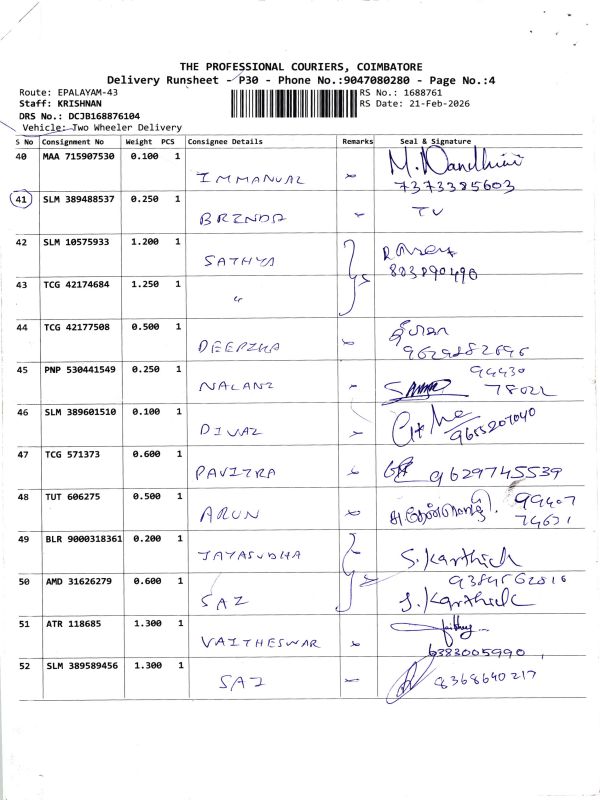 THE PROFESSIONAL COURIERS, COIMBATORE
Delivery Runsheet - P30 - Phone No.:9047080280 - Page No.:4
Route: EPALAYAM-43
RS No.: 1688761
Staff: KRISHNAN
RS Date: 21-Feb-2026
DRS No.: DCJB168876104
Vehicle: Two Wheeler Delivery
S No Consignment No Weight PCS Consignee Details Remarks Seal & Signature
40 MAA 715907530 0.100 1 IMMANUAL M. Nandhini
7373385603
41 SLM 389488537 0.250 1 BRINDA
42 SLM 10575933 1.200 1 SATHYA
43 TCG 42174684 1.250 1 "
44 TCG 42177508 0.500 1 DEEPIKA
45 PNP 530441549 0.250 1 NALANI 94430
78022
46 SLM 389601510 0.100 1
9655207040
47 TCG 571373 0.600 1 PAVITRA 9629745539
48 TUT 606275 0.500 1 ARUN
49 BLR 9000318361 0.200 1 JAYASUDHA S. Karthick
50 AMD 31626279 0.600 1 SAI S. Karthick
51 ATR 118685 1.300 1 VAITHESWAR
6383005990
52 SLM 389589456 1.300 1 SAI 8368640217